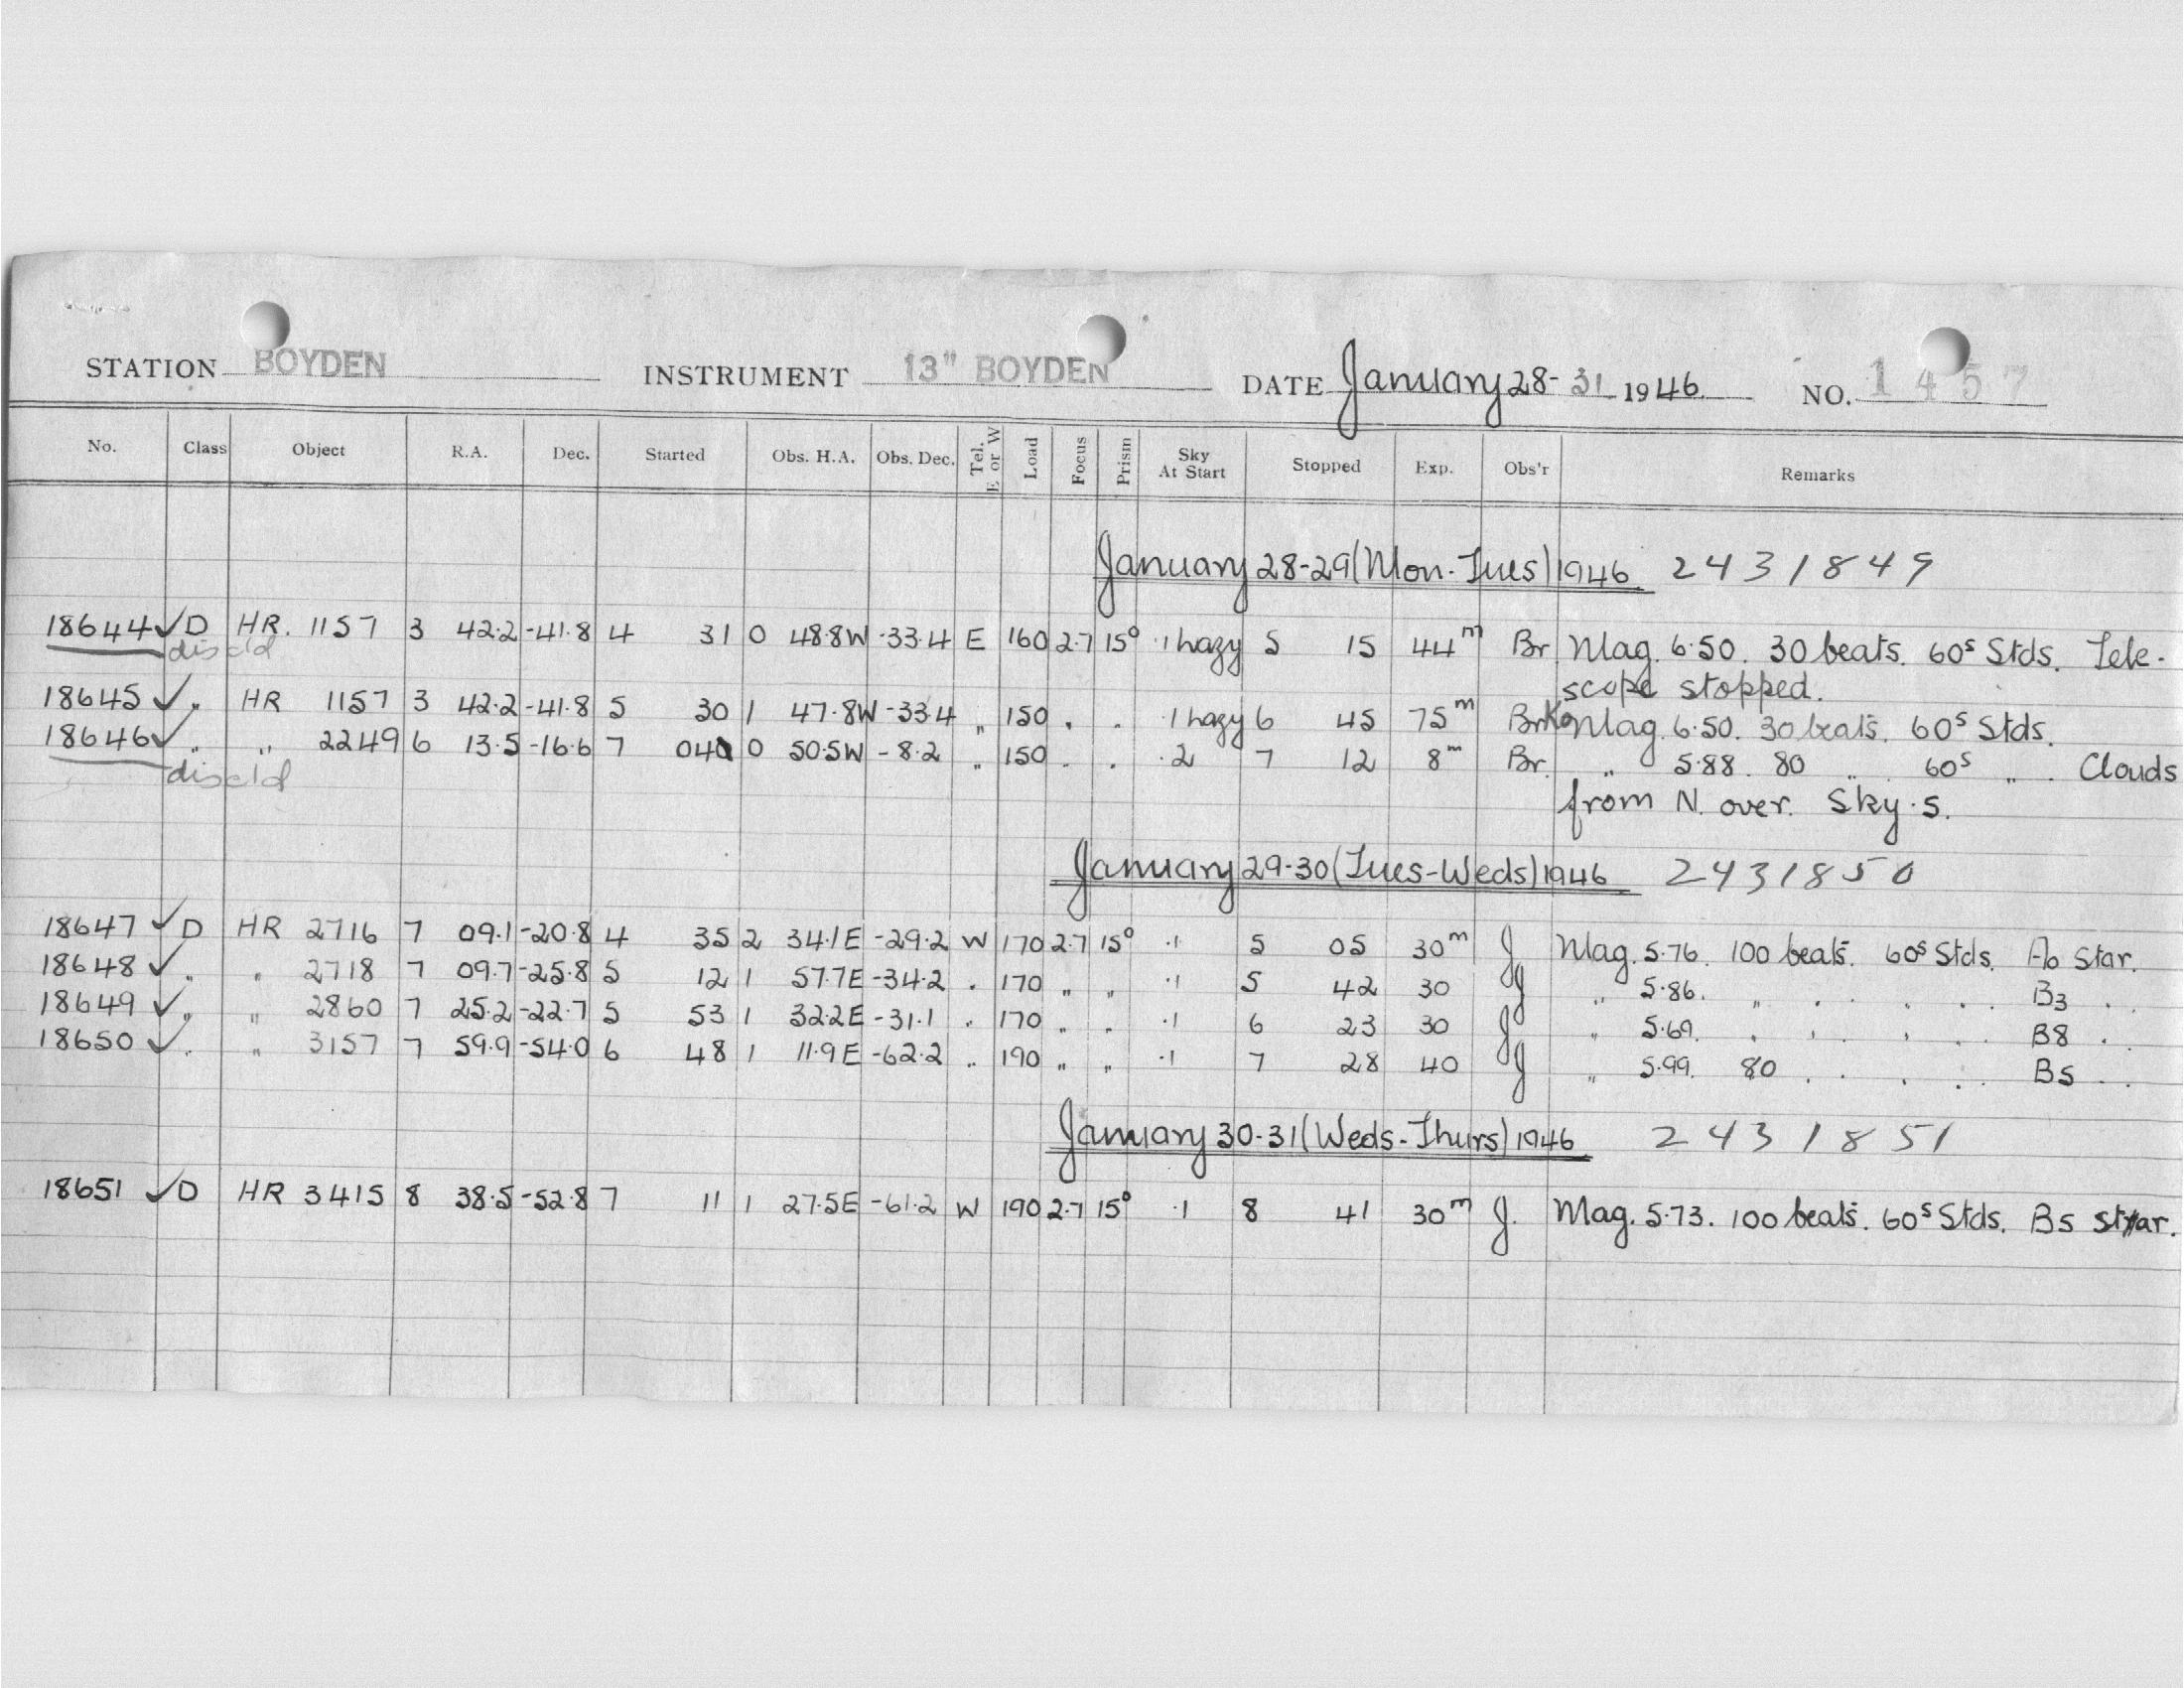 STATION BOYDEN INSTRUMENT 13" BOYDEN DATE January 28-31 1946. NO. 1457
No. Class Object R.A. Dec. Started Obs. H.A. Obs. Dec. Tel. E or W Load Focus Prism Sky At Start Stopped Exp. Obs'r Remarks
January 28-29 (Mon-Tues) 1946 2431849
18644 ✓ D HR. 1157 3 42.2 -41.8 4 31 0 48.8W -33.4 E 160 2.7 15° .1 hazy 5 15 44m Br Mag. 6.50. 30 beats. 60s Stds. Tele-
disc'd scope stopped.
18645 ✓ " HR 1157 3 42.2 -41.8 5 30 1 47.8W -33.4 " 150 " " .1 hazy 6 45 75m BrKo Mag. 6.50. 30 beats. 60s Stds.
18646 ✓ " " 2249 6 13.5 -16.6 7 04 0 50.5W -8.2 " 150 " " .2 7 12 8m Br. " 5.88. 80 " 60s " . Clouds
disc'd from N. over. Sky .5.
January 29-30 (Tues-Weds) 1946 2431850
18647 ✓ D HR 2716 7 09.1 -20.8 4 35 2 34.1E -29.2 W 170 2.7 15° .1 5 05 30m J Mag. 5.76. 100 beats. 60s Stds. A0 Star.
18648 ✓ " " 2718 7 09.7 -25.8 5 12 1 57.7E -34.2 " 170 " " .1 5 42 30 J " 5.86. " " " " B3 "
18649 ✓ " " 2860 7 25.2 -22.7 5 53 1 32.2E -31.1 " 170 " " .1 6 23 30 J " 5.69. " " " " B8 "
18650 ✓ " " 3157 7 59.9 -54.0 6 48 1 11.9E -62.2 " 190 " " .1 7 28 40 J " 5.99. 80 " " " B5 "
January 30-31 (Weds-Thurs) 1946 2431851
18651 ✓ D HR 3415 8 38.5 -52.8 7 11 1 27.5E -61.2 W 190 2.7 15° .1 8 41 30m J. Mag. 5.73. 100 beats. 60s Stds. B5 star.